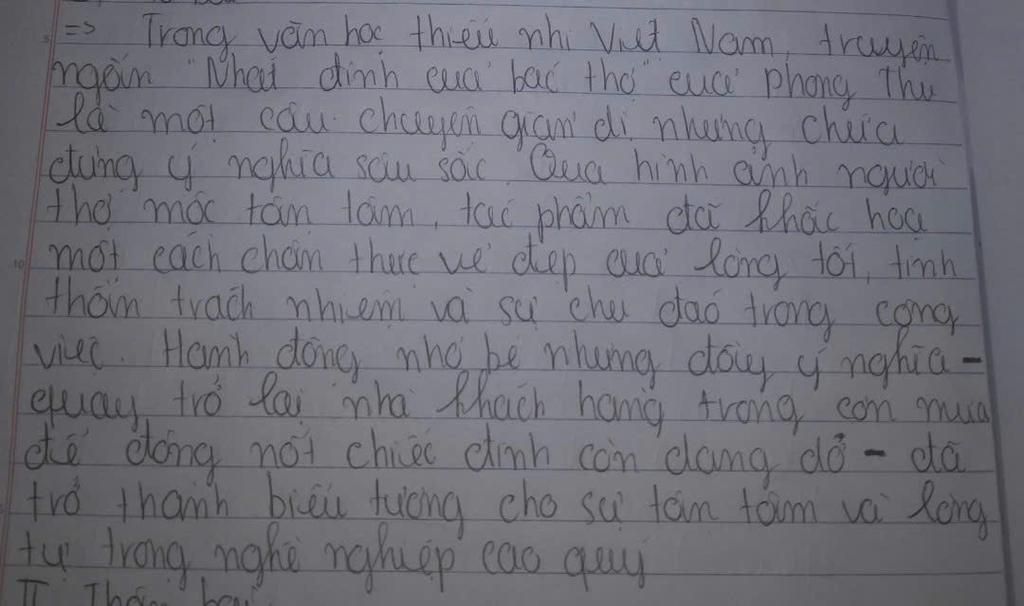 => Trong văn học thiếu nhi Việt Nam, truyện
ngắn "Nhát đinh của bác thợ" của Phong Thu
là một câu chuyện giản dị nhưng chứa
đựng ý nghĩa sâu sắc. Qua hình ảnh người
thợ mộc tận tâm, tác phẩm đã khắc họa
một cách chân thực vẻ đẹp của lòng tốt, tinh
thần trách nhiệm và sự chu đáo trong công
việc. Hành động nhỏ bé nhưng đầy ý nghĩa -
quay trở lại nhà khách hàng trong cơn mưa
để đóng nốt chiếc đinh còn dang dở - đã
trở thành biểu tượng cho sự tận tâm và lòng
tự trọng nghề nghiệp cao quý
II. Thân bài